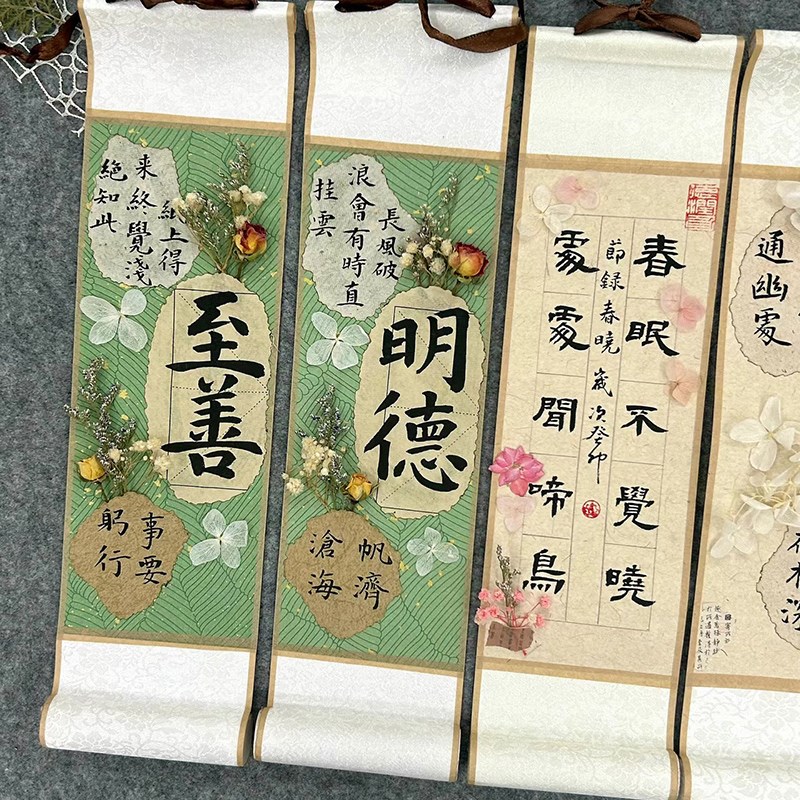 紙上得
来終覺淺
絕知此
至善
事要
躬行
長風破
浪會有時直
挂雲
明德
帆濟
滄海
春眠不覺曉
節錄春曉 歲次癸卯
處處聞啼鳥
通幽處
木深